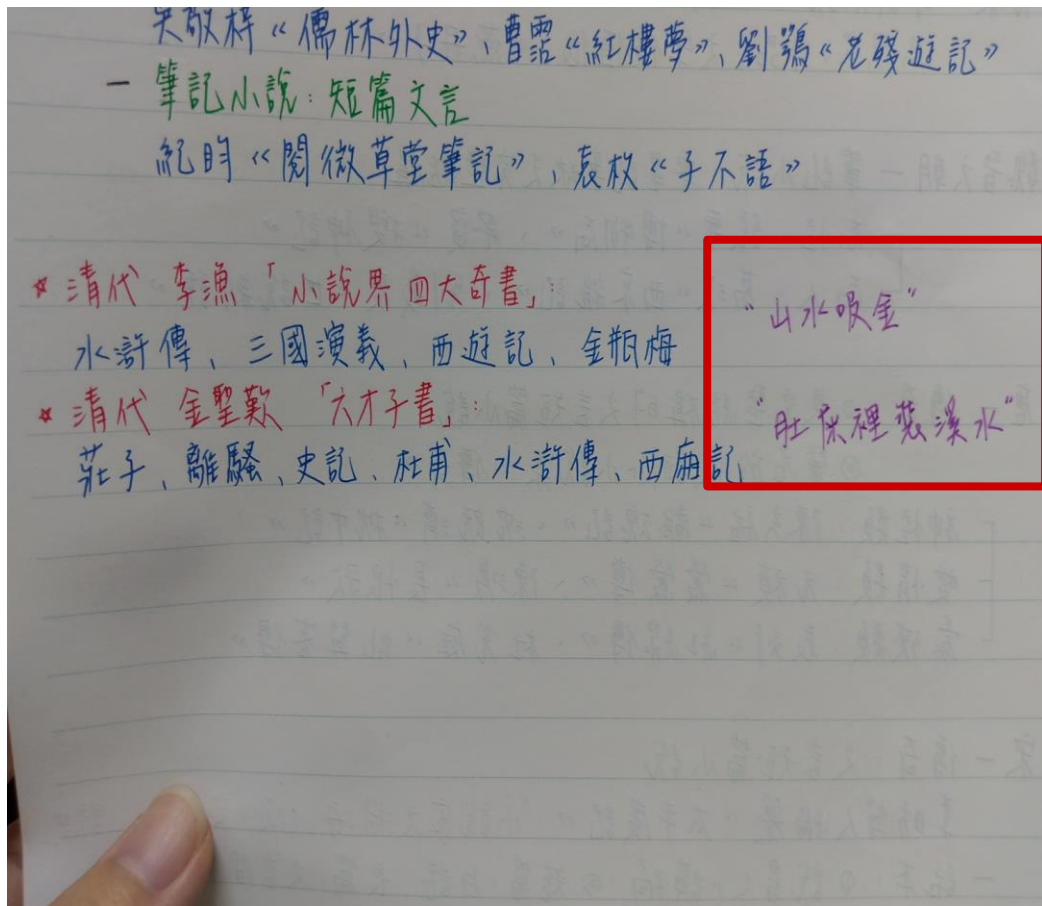 吳敬梓《儒林外史》、曹霑《紅樓夢》、劉鶚《老殘遊記》
- 筆記小說：短篇文言
紀昀《閱微草堂筆記》、袁枚《子不語》
* 清代 李漁「小說界四大奇書」：
水滸傳、三國演義、西遊記、金瓶梅
"山水吸金"
* 清代 金聖歎 「六才子書」：
莊子、離騷、史記、杜甫、水滸傳、西廂記
"肚 裡裝溪水"